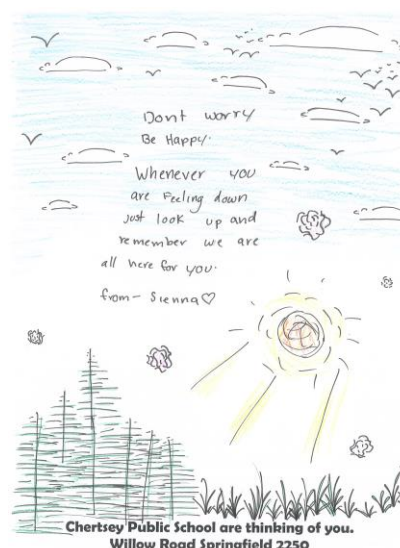 Dont worry
Be Happy.
Whenever you
are Feeling down
just look up and
remember we are
all here for you.
from - Sienna♡
Chertsey Public School are thinking of you.
Willow Road Springfield 2250